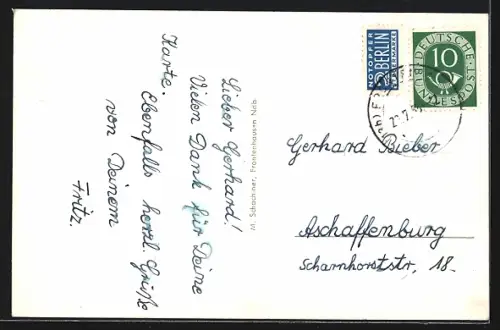 Lieber Gerhard!
Vielen Dank für Deine
Karte.
Ebenfalls herzl. Grüße
von Deinem
Fritz.
M. Schachtner, Frontenhausen Ndb.
NOTOPFER
2 BERLIN
STEUERMARKE
DEUTSCHE
10
BUNDESPOST
Gerhard Bieber
Aschaffenburg
Scharnhorststr. 18.